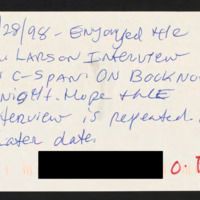 /28/98 - Enjoyed the
LARSON INTERVIEW
C-SPAN'S ON BOOKNO
NIGHT. HOPE THE
terview is repeated.
later date.
O.